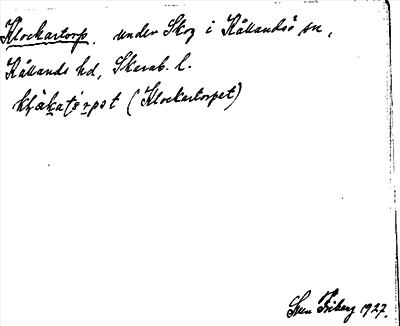 Klockartorp, under Skog i Kållandsö sn,
Kållands hd, Skarab. l.
klåkatårpet (Klockartorpet)
Sven Friberg 1927.